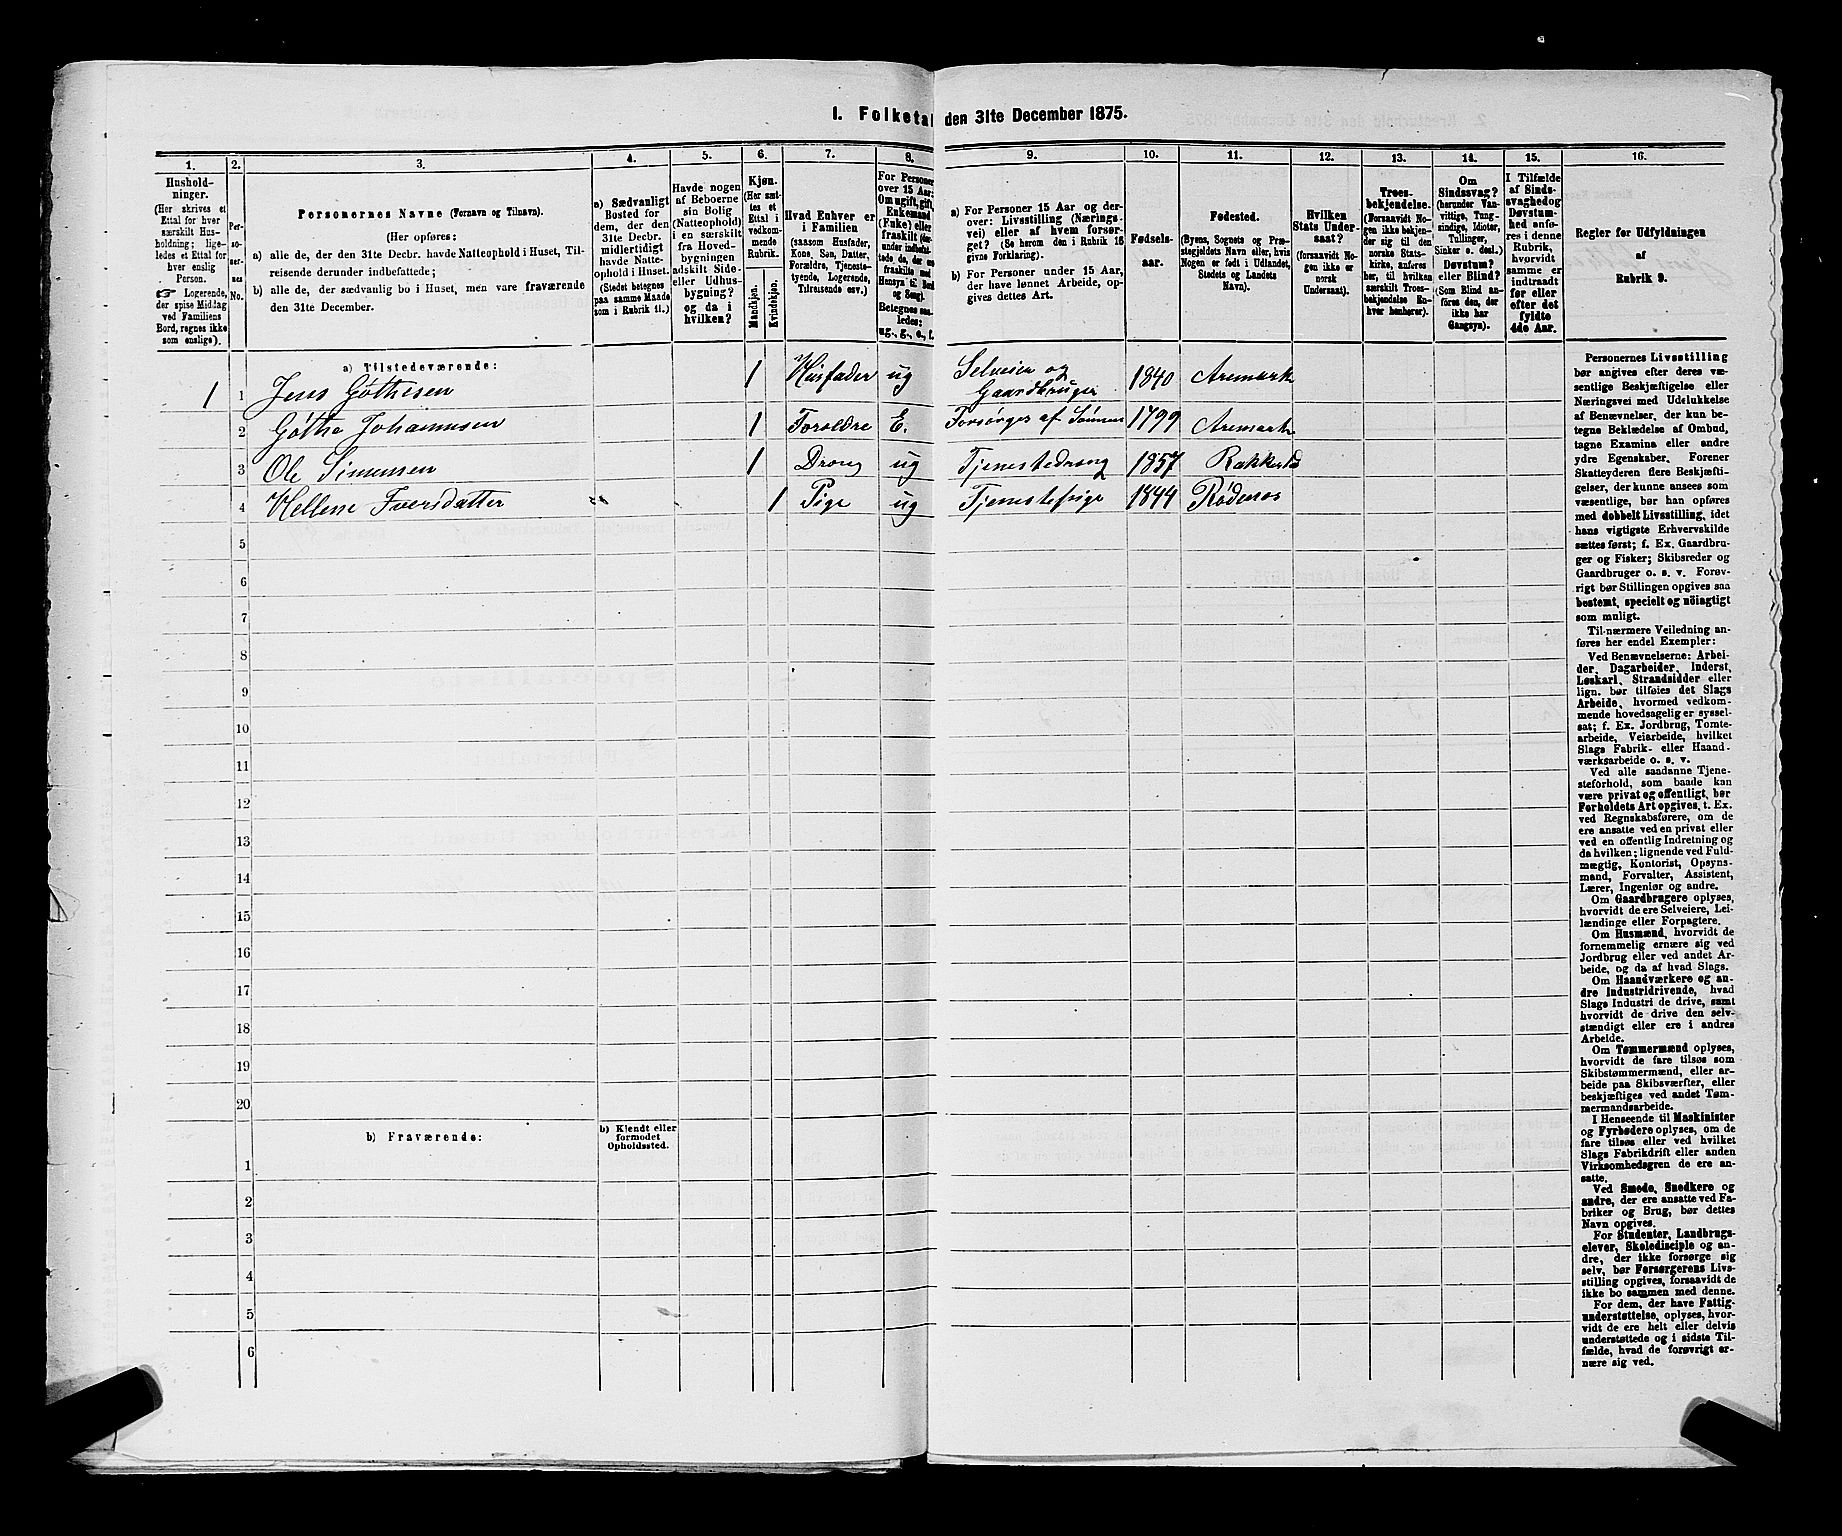 1. Folketal den 31te December 1875.
1. 2. 3. 4. 5. 6. 7. 8. 9. 10. 11. 12. 13. 14. 15. 16.
Hushold-
ninger.
(Her skrives et
Ettal for hver
særskilt Hus-
holdning; lige-
ledes et Ettal for
hver enslig
Person.
☞ Logerende,
der spise Middag
ved Familiens
Bord, regnes ikke
som enslige).
Per-
so-
ner-
nes
No.
Personernes Navne (Fornavn og Tilnavn).
(Her opføres:
a) alle de, der den 31te Decbr. havde Natteophold i Huset, Til-
reisende derunder indbefattede;
b) alle de, der sædvanlig bo i Huset, men vare fraværende
den 31te December.
a) Sædvanligt
Bosted for
dem, der den
31te Decbr.
midlertidigt
havde Natte-
ophold i Huset.
(Stedet betegnes
paa samme Maade
som i Rubrik 11.)
Havde nogen
af Beboerne
sin Bolig
(Natteophold)
i en særskilt
fra Hoved-
bygningen
adskilt Side-
eller Udhus-
bygning?
og da i
hvilken?
Kjøn.
(Her sæt-
tes et
Ettal i
vedkom-
mende
Rubrik.
Mandkjøn.
Kvindekjøn.
Hvad Enhver er
i Familien
(saasom Husfader,
Kone, Søn, Datter,
Forældre, Tjeneste-
tyende, Logerende,
Tilreisende osv.)
For Personer
over 15 Aar:
Om ugift, gift,
Enkemand
(Enke) eller
fraskilt (der-
under indbefat-
tede de, der ere
fraskilte med
Hensyn til Bord
og Seng).
Betegnes saa-
ledes:
ug., g., e., f.
a) For Personer 15 Aar og der-
over: Livsstilling (Nærings-
vei) eller af hvem forsør-
get? (Se herom den i Rubrik 16
givne Forklaring).
b) For Personer under 15 Aar,
der have lønnet Arbeide, op-
gives dettes Art.
Fødsels-
aar.
Fødested.
(Byens, Sognets og Præ-
stegjeldets Navn eller, hvis
Nogen er født i Udlandet,
Stedets og Landets
Navn).
Hvilken
Stats Under-
saat?
(forsaavidt No-
gen ikke er
norsk
Undersaat).
Troes-
bekjendelse.
(Forsaavidt No-
gen ikke bekjen-
der sig til den
norske Stats-
kirke, anføres
her, til hvilken
særskilt Troes-
bekjendelse En-
hver henhører).
Om
Sindssvag?
(herunder Van-
vittige, Tung-
sindige, Idioter,
Tullinger,
Sinker o. desl.)
Døvstum?
eller Blind?
(Som Blind an-
føres den, der
ikke har
Gangsyn).
I Tilfælde
af Sinds-
svaghed og
Døvstum-
hed anfø-
res i denne
Rubrik,
hvorvidt
samme er
indtraadt
før eller
efter det
fyldte
4de Aar.
Regler for Udfyldningen
af
Rubrik 9.
a) Tilstedeværende:
1 1 Jens Göthesen 1 Husfader ug Selveier og Gaardbruger 1840 Aremark
2 Göthe Johannesen 1 Foroldre E. Forsörges af Sönnen 1799 Aremark
3 Ole Simensen 1 Dreng ug Tjenestedreng 1857 Rakkestd
4 Hellene Iversdatter 1 Pige ug Tjenestepige 1844 Rödenes
5
6
7
8
9
10
11
12
13
14
15
16
17
18
19
20
b) Fraværende:
b) Kjendt eller
formodet
Opholdssted.
1
2
3
4
5
6
Personernes Livsstilling
bør angives efter deres væ-
sentlige Beskjæftigelse eller
Næringsvei med Udelukkelse
af Benævnelser, der kun be-
tegne Beklædelse af Ombud,
tagne Examina eller andre
ydre Egenskaber. Forener
Skatteyderen flere Beskjæfti-
gelser, der kunne ansees som
væsentlige, bør han opføres
med dobbelt Livsstilling, idet
hans vigtigste Erhvervskilde
sættes først; f. Ex. Gaardbru-
ger og Fisker; Skibsreder og
Gaardbruger o. s. v. Forøv-
rigt bør Stillingen opgives saa
bestemt, specielt og nöiagtigt
som muligt.
Til nærmere Veiledning an-
føres her endel Exempler:
Ved Benævnelserne: Arbei-
der, Dagarbeider, Inderst,
Løskarl, Strandsidder eller
lign. bør tilføies det Slags
Arbeide, hvormed vedkom-
mende hovedsagelig er syssel-
sat; f. Ex. Jordbrug, Tomte-
arbeide, Veiarbeide, hvilket
Slags Fabrik- eller Haand-
værksarbeide o. s. v.
Ved alle saadanne Tjene-
steforhold, som baade kan
være privat og offentligt, bør
Forholdets Art opgives, t. Ex.
ved Regnskabsførere, om de
ere ansatte ved en privat eller
ved en offentlig Indretning og
da hvilken; lignende ved Fuld-
mægtig, Kontorist, Opsyns-
mand, Forvalter, Assistent,
Lærer, Ingeniør og andre.
Om Gaardbrugere oplyses,
hvorvidt de ere Selveiere, Lei-
lændinge eller Forpagtere.
Om Husmænd, hvorvidt de
fornemmelig ernære sig ved
Jordbrug eller ved andet Ar-
beide, og da af hvad Slags.
Om Haandværkere og an-
dre Industridrivende, hvad
Slags Industri de drive, samt
hvorvidt de drive den selv-
stændigt eller ere i andres
Arbeide.
Om Tømmermænd oplyses,
hvorvidt de fare tilsøs som
Skibstømmermænd, eller ar-
beide paa Skibsværfter, eller
beskjæftiges ved andet Tøm-
mermandsarbeide.
I Henseende til Maskinister
og Fyrbødere oplyses, om de
fare tilsøs eller ved hvilket
Slags Fabrikdrift eller anden
Virksomhedsgren de ere an-
satte.
Ved Smede, Snedkere og
andre, der ere ansatte ved Fa-
briker og Brug, bør dettes
Navn opgives.
For Studenter, Landbrugs-
elever, Skoledisciple og an-
dre, der ikke forsørge sig
selv, bør Forsørgerens Livs-
stilling opgives, forsaavidt de
ikke bo sammen med denne.
For dem, der have Fattig-
understøttelse, oplyses, hvor-
vidt de ere helt eller delvis
understøttede og i sidste Til-
fælde, hvad de forøvrigt er-
nære sig ved.